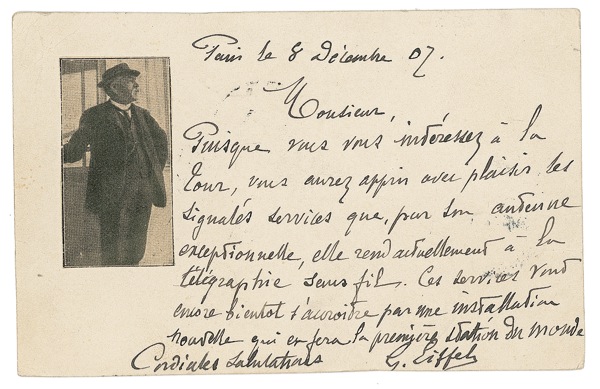 Paris le 8 Décembre 07.
Monsieur,
Puisque vous vous intéressez à la
Tour, vous aurez appris avec plaisir les
signalés services que, par son antenne
exceptionnelle, elle rend actuellement à la
télégraphie sans fil. Ces services vont
encore bientôt s'accroître par une installation
nouvelle qui en fera la première station du monde
Cordiales salutations G. Eiffel